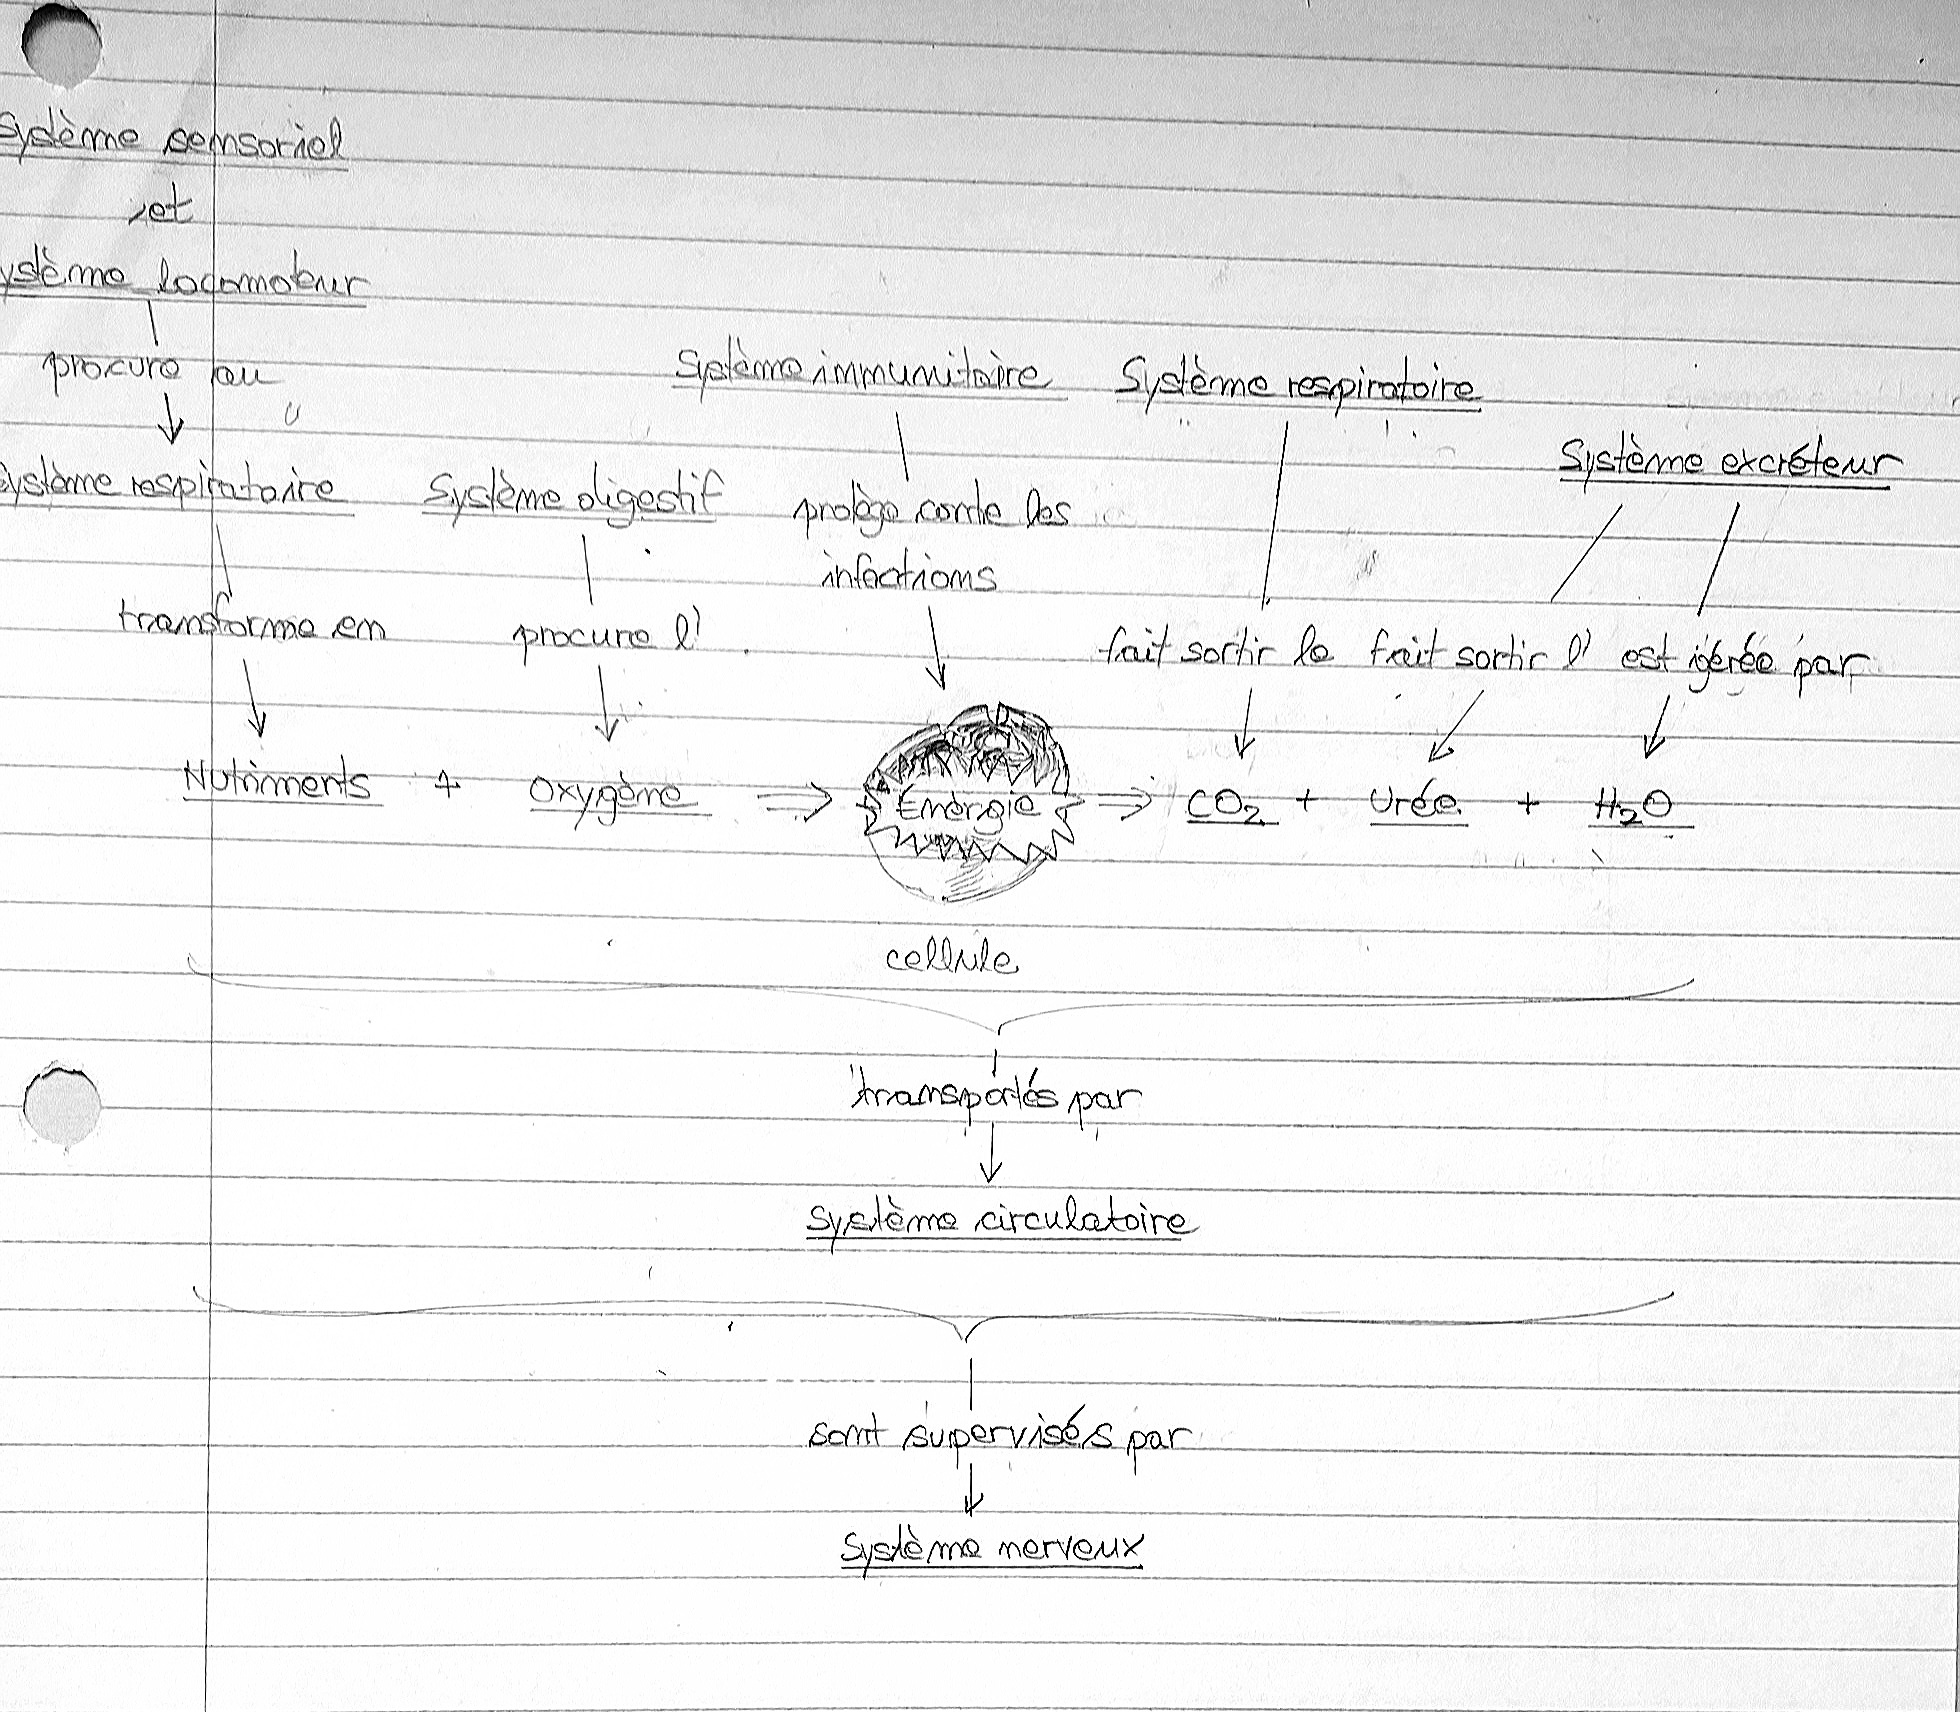 Système sensoriel
et
ystème locomoteur
procure au
Système immunitaire Système respiratoire
Système excréteur
Système respiratoire Système digestif protège contre les
infections
transforme en procure l' fait sortir le fait sortir l' est gérée par
Nutriments + Oxygène ⇒ Énergie ⇒ CO₂ + Urée + H₂O
cellule
transportés par
Système circulatoire
sont supervisés par
Système nerveux